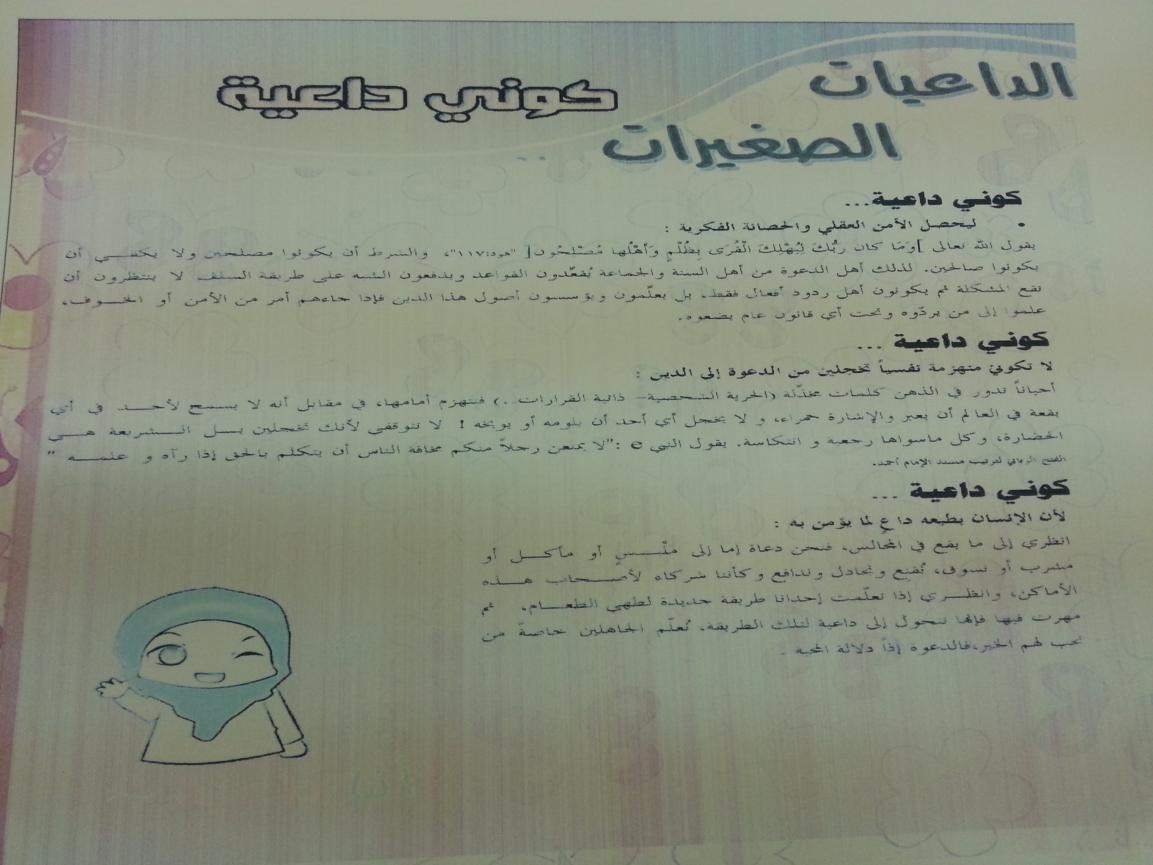 الداعيات
كوني داعية
الصغيرات ..
كوني داعية...
• ليحصل الأمن العقلي والحصانة الفكرية :
يقول الله تعالى ]وَمَا كَانَ رَبُّكَ لِيُهْلِكَ الْقُرَى بِظُلْمٍ وَأَهْلُهَا مُصْلِحُون[ "هود:١١٧"، والشرط أن يكونوا مصلحين ولا يكفي أن
يكونوا صالحين. لذلك أهل الدعوة من أهل السنة والجماعة يُقعّدون القواعد ويدفعون الشبه على طريقة السلف لا ينتظرون أن
تقع المشكلة ثم يكونون أهل ردود أفعال فقط، بل يعلّمون ويؤسسون أصول هذا الدين فإذا جاءهم أمر من الأمن أو الخوف،
علموا إلى من يردّوه وتحت أي قانون عام يضعوه.
كوني داعية ...
لا تكوني منهزمة نفسياً تخجلين من الدعوة إلى الدين :
أحياناً تدور في الذهن كلمات مخذّلة (الحرية الشخصية- ذاتية القرارات..) فتهزم أمامها، في مقابل أنه لا يسمح لأحد في أي
بقعة في العالم أن يعبر والإشارة حمراء، و لا يخجل أي أحد أن يلومه أو يوبخه ! لا تتوقفي لأنك تخجلين بل الشريعة هي
الحضارة، وكل ماسواها رجعية و انتكاسة. يقول النبي e :"لا يمنعن رجلاً منكم مخافة الناس أن يتكلم بالحق إذا رآه و علمه "
الفتح الرباني لترتيب مسند الإمام أحمد.
كوني داعية ...
لأن الإنسان بطبعه داعٍ لما يؤمن به :
انظري إلى ما يقع في المجالس، فنحن دعاة إما إلى ملبسٍ أو مأكل أو
مشرب أو تسوق، نُقنع ونجادل وندافع وكأننا شركاء لأصحاب هذه
الأماكن، وانظري إذا تعلّمت إحدانا طريقة جديدة لطهي الطعام، ثم
مهرت فيها فإنها تتحول إلى داعية لتلك الطريقة، تُعلّم الجاهلين خاصةً من
تحب لهم الخير،فالدعوة إذاً دلالة المحبة .